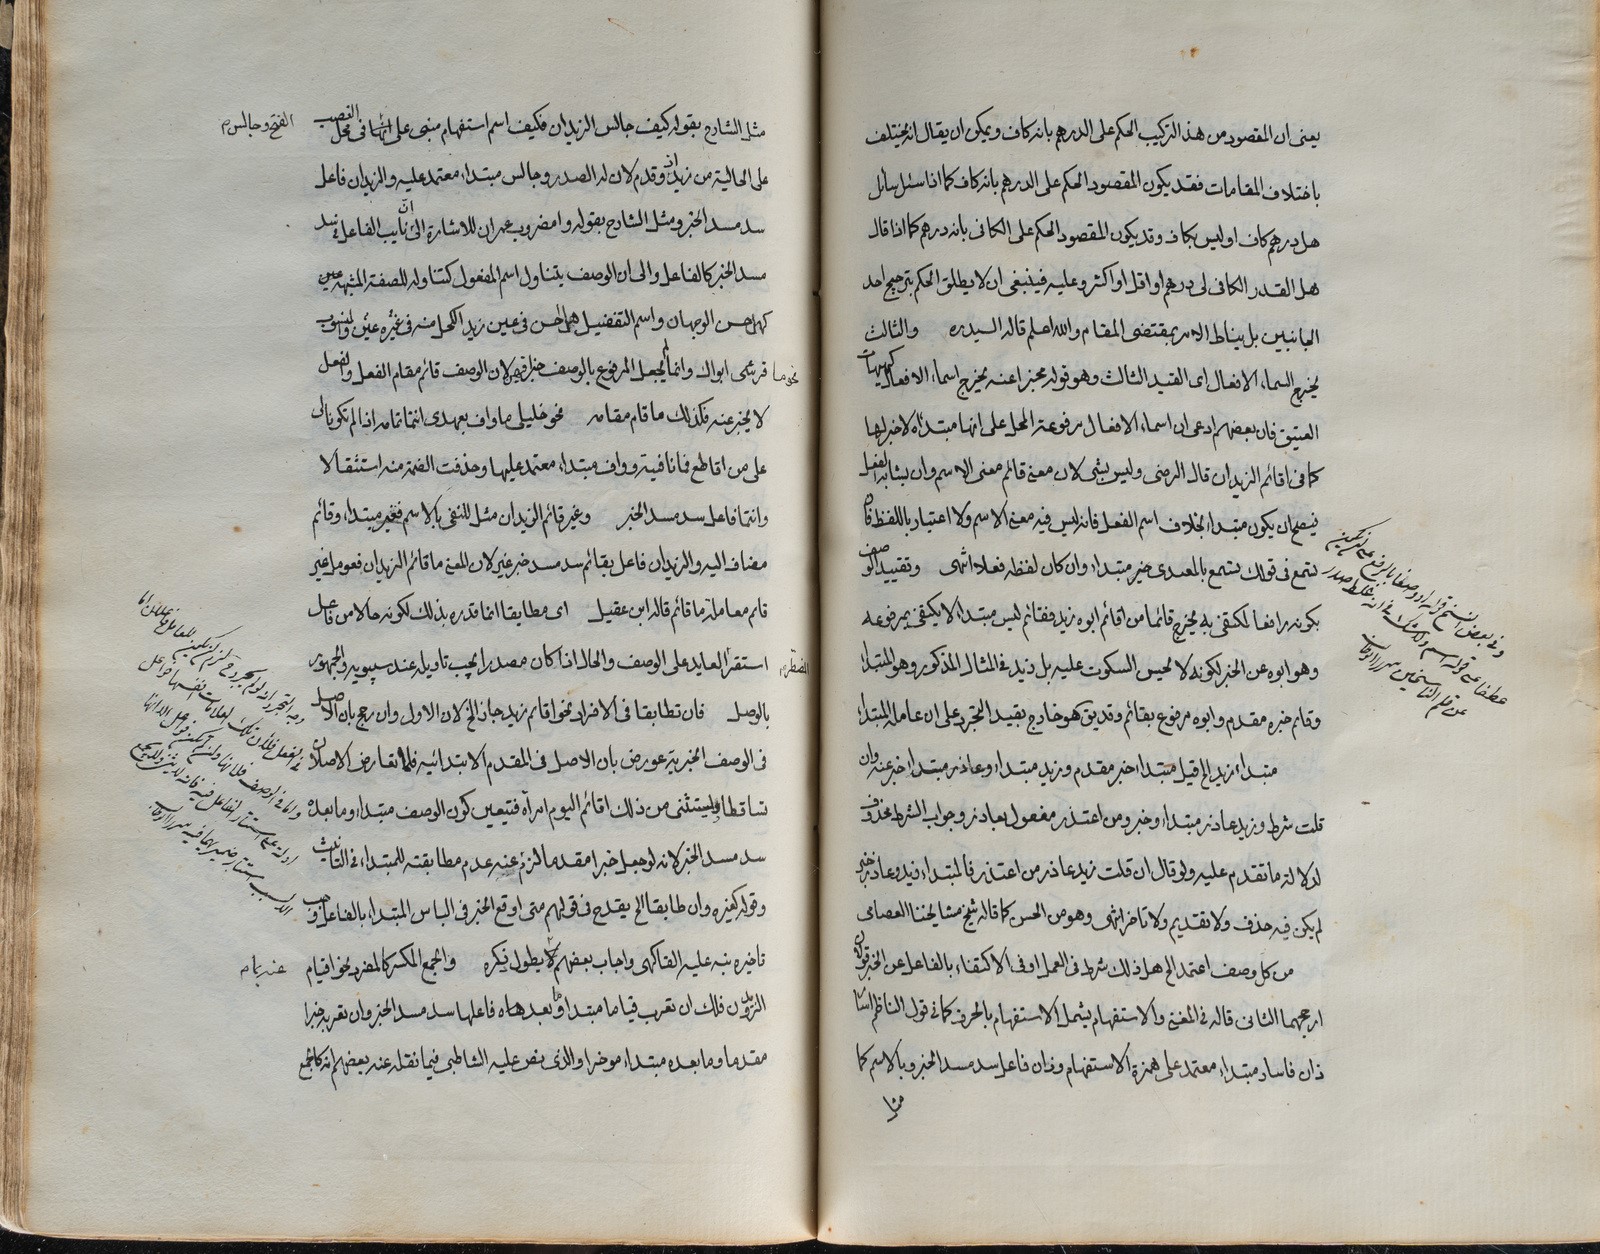 يعنى ان المقصود من هذا التركيب الحكم على الدرهم بانه كاف ويمكن ان يقال انه يختلف
باختلاف المقامات فقد يكون المقصود الحكم على الدرهم بانه كاف كما اذا سئل سائل
هل درهم كاف او ليس بكاف وقد يكون المقصود الحكم على الكافى بانه درهم كما اذا قال
هل القدر الكافى لى درهم او اقل او اكثر وعليه فينبغى ان لا يطلق الحكم بترجيح احد
الجانبين بل يناط الامر بمقتضى المقام والله اعلم قاله السيد ره والثالث
يخرج اسماء الافعال اى القيد الثالث وهو قوله مخبرا عنه يخرج اسماء الافعال كهيهات
العقيق فان بعضهم ادعى ان اسماء الافعال مرفوعة المحل على انها مبتداه لا خبر لها
كما فى اقائم الزيدان قال الرضى وليس بشى لان معنى قائم معنى الاسم وان شابه الفعل
فيصح ان يكون مبتداء بخلاف اسم الفعل فانه ليس فيه معنى الاسم ولا اعتبار باللفظ فان
تسمع فى قولك تسمع بالمعيدى خير مبتداء وان كان لفظه فعلا انتهى وتقييد الوصف
بكونه رافعا لمكتفى به يخرج قائما من اقائم ابوه زيد فقائم ليس مبتداء لا يكتفى بمرفوعه
وهو ابوه عن الخبر لكونه لا يحسن السكوت عليه بل زيد فى المثال المذكور وهو المبتدا
وقائم خبره مقدم وابوه مرفوع بقائم وقد يق هو خارج بقيد المجرد على ان عامله المبتدا
مبتداء زيد الخ قيل مبتداء خبر مقدم وزيد مبتداء وعاذر مبتداء خبر عنه وان
قلت شرط وزيد عاذر مبتداء وخبر ومن اعتذر مفعول بعاذر وجواب الشرط محذوف
لدلالة ما تقدم عليه ولو قال ان قلت زيد عاذر من اعتذر فالمبتداء زيد وعاذر خبر
لم يكن فيه حذف ولا تقديم ولا تاخر انتهى وهو من الحسن كما قاله شيخ مشايخنا العصامى
من كل وصف اعتمد الخ هل ذلك شرط فى العمل او فى الاكتفاء بالفاعل عن الخبر قولان
ارجحهما الثانى قاله فى المغنى والاستفهام يشمل الاستفهام بالحرف كما فى قول الناظم اسار
ذان فاسار مبتداء معتمد على همزة الاستفهام وذان فاعل سد مسد الخبر وبالاسم كما
مثل
مثل الشارح بقوله كيف جالس الزيدان فكيف اسم استفهام مبنى على الفتح فى محل النصب
على الحالية من زيدان وقدم لان له الصدر وجالس مبتداء معتمد عليه والزيدان فاعل
سد مسد الخبر ومثل الشارح بقوله وامضروب عمران للاشارة الى ان نايب الفاعل يسد
مسد الخبر كالفاعل والى ان الوصف يتناول اسم المفعول كتناوله للصفة المشبهة
واسم التفضيل هل احسن فى عين زيد الكحل منه فى عين غيره والمنسوب
نحو ما قرشى ابواك وانما لم يجعل المرفوع بالوصف خبرا لان الوصف قائم مقام الفعل والفعل
لا يخبر عنه فكذلك ما قام مقامه نحو خليلى ما واف بعهدى انتما تمامه اذا لم تكونا لى
على من اقاطع فما نافية وواف مبتداء معتمد عليها وحذفت الضمة منه استثقالا
وانتما فاعل سد مسد الخبر وغير قائم الزيدان مثل للنفى بالاسم فغير مبتداء وقائم
مضاف اليه والزيدان فاعل بقائم سد مسد خبر غير لان المعنى ما قائم الزيدان فعومل غير
قائم معاملة ما قائم قاله ابن عقيل اى مطابقا انما قدره بذلك لكونه حالا من فاعل
استقر العايد على الوصف والحال اذا كان مصدرا يجب تاويله عند سيبويه والجمهور
بالوصف فان تطابقا فى الافراد نحو اقائم زيد جاز الخ لان الاول وان رجح بان الاصل
فى الوصف الخبرية عورض بان الاصل فى المقدم الابتدائية فلما تعارض الاصلان
تساقطا ويستثنى من ذلك اقائم اليوم امرأة فتعيين كون الوصف مبتداء وما بعده
سد مسد الخبر لانه لو جعل خبرا مقدما لزم عنه عدم مطابقته للمبتداء فى التانيث
وقوله كغيره وان طابقا الخ يقدح فى قولهم متى اوقع الخبر فى الباس المبتداء بالفاعل وجب
تاخيره نبه عليه الفاكهى واجاب بعضهم بما يطول ذكره والجمع المكسر كالمفرد نحو اقيام
الزيدون فلك ان تعرب قياما مبتداء وما بعدها فاعلها سد مسد الخبر وان تعربه خبرا
مقدما وما بعده مبتداء موخرا والذى نص عليه الشاطبى فيما نقله عنه بعضهم انه كالجمع